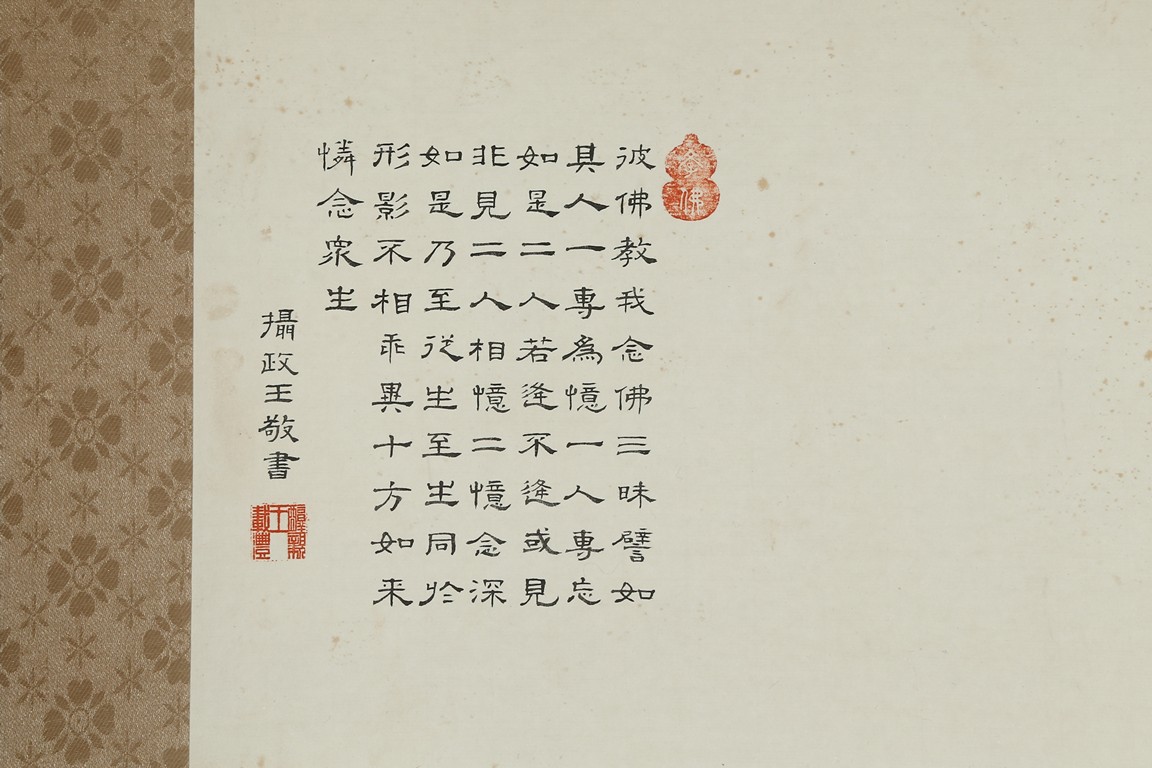 奉佛
彼佛教我念佛三昧譬如
具人一專爲憶一人專忘
如是二人若逢不逢或見
非見二人相憶二憶念深
如是乃至從生至生同於
形影不相乖異十方如来
憐念衆生
攝政王敬書
醇親王載灃